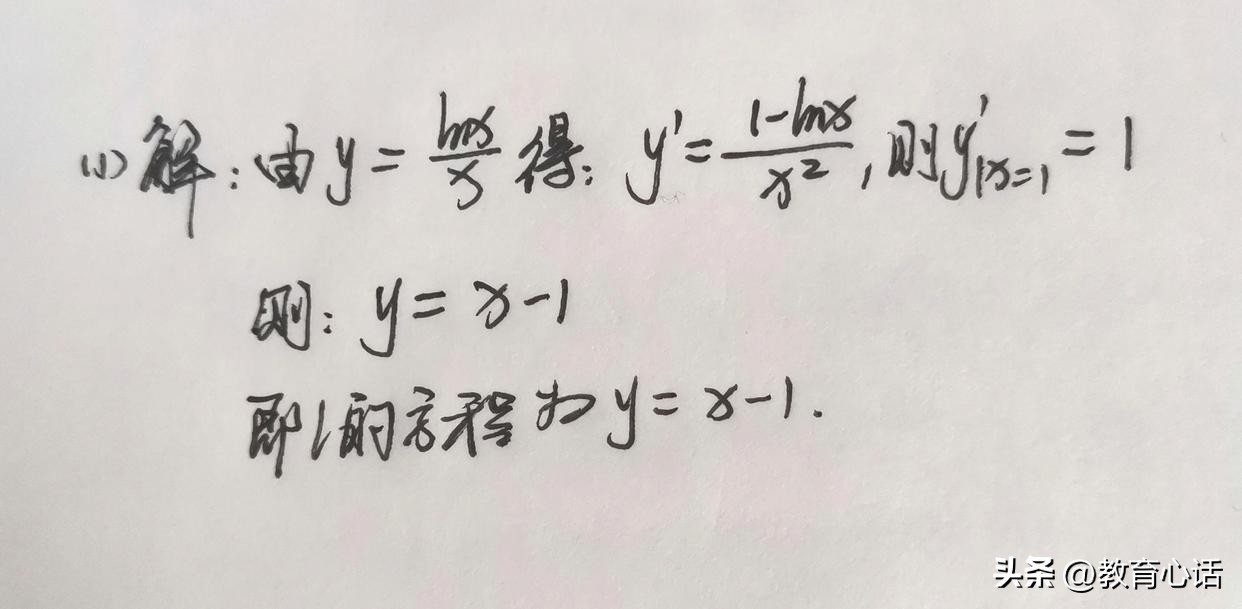 (1) 解：由 y = lnx/x 得：y' = 1-lnx/x²，则y'|x=1 = 1
则：y = x-1
即l的方程为y = x-1.
头条 @教育心话